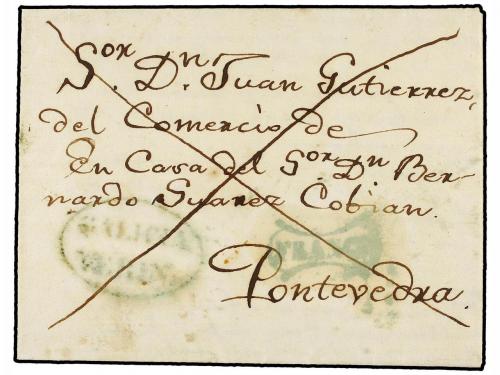 Sor. Dn. Juan Gutierrez,
del Comercio de
En Casa del Sor. Dn Ber-
nardo Suarez Cobian.
FRANCO
Pontevedra.